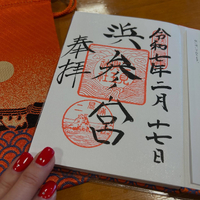 令和七年二月十七日
浜参宮
奉拝